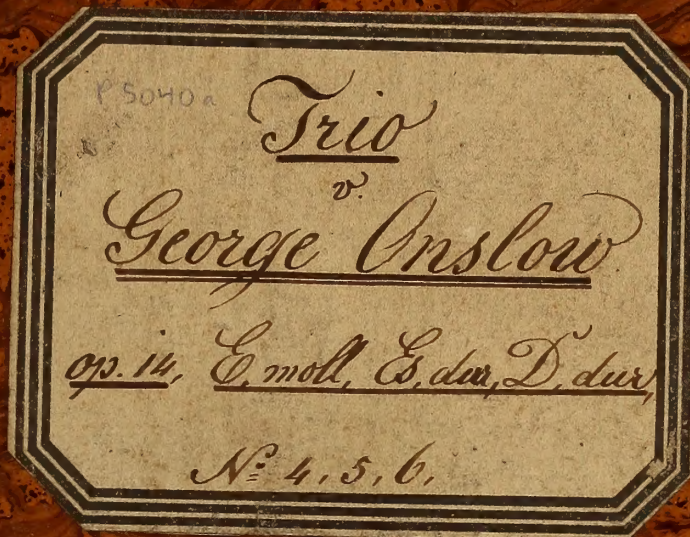 P 5040a
Trio
v.
George Onslow
op. 14, E, moll, Es, dur, D, dur,
Nº 4, 5, 6.